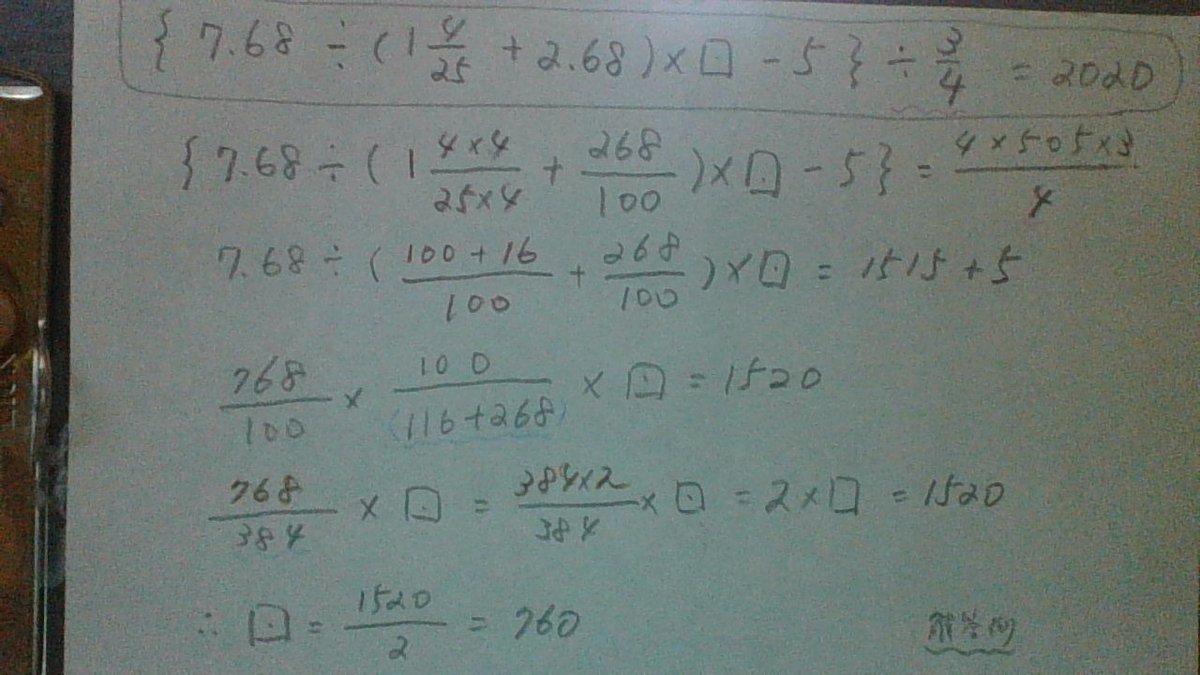 { 7.68 ÷ (1 4/25 + 2.68) × □ - 5 } ÷ 3/4 = 2020
{ 7.68 ÷ (1 4×4/25×4 + 268/100) × □ - 5 } = 4×505×3/4
7.68 ÷ (100+16/100 + 268/100) × □ = 1515 + 5
768/100 × 100/(116+268) × □ = 1520
768/384 × □ = 384×2/384 × □ = 2 × □ = 1520
∴ □ = 1520/2 = 760
解答例